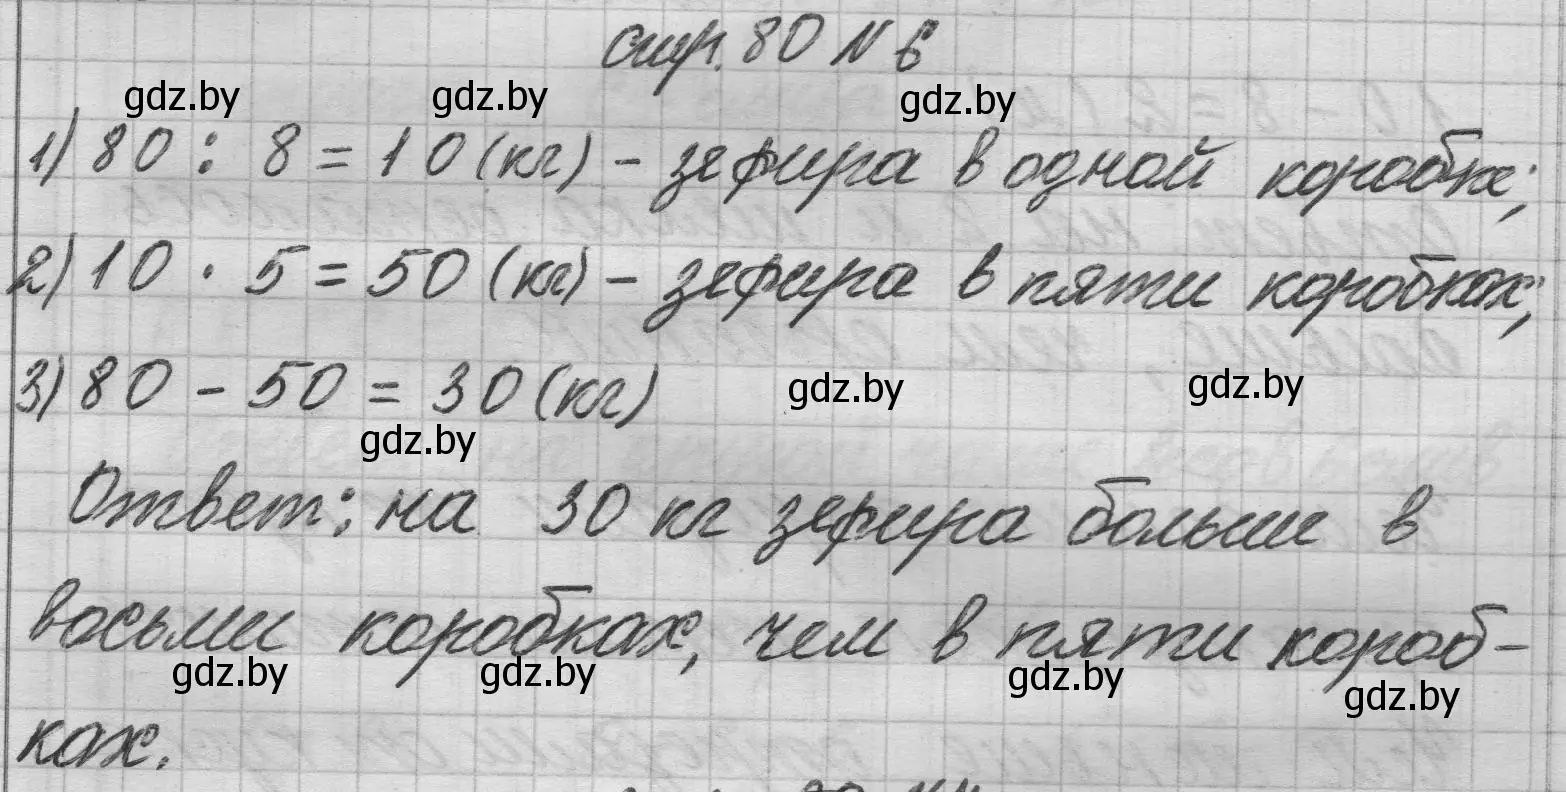 стр. 80 N 6
gdz.by gdz.by gdz.by
1) 80 : 8 = 10 (кг) - зефира в одной коробке;
2) 10 · 5 = 50 (кг) - зефира в пяти коробках;
3) 80 - 50 = 30 (кг)
gdz.by gdz.by
gdz.by
Ответ: на 30 кг зефира больше в
восьми коробках, чем в пяти короб-
gdz.by gdz.by gdz.by gdz.by
ках.